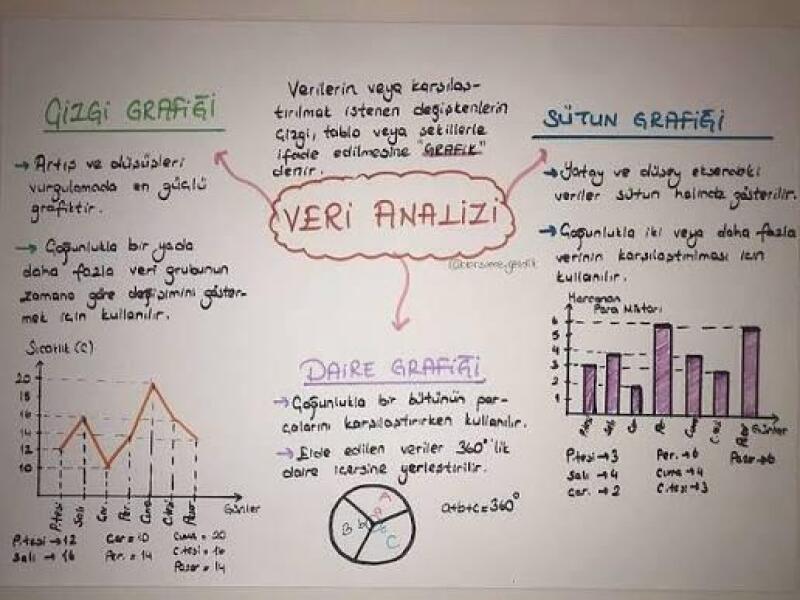 Verilerin veya karşılaş-
tırılmak istenen değişkenlerin
çizgi, tablo veya şekillerle
ifade edilmesine "GRAFİK"
denir.
VERİ ANALİZİ
ÇİZGİ GRAFİĞİ
→ Artış ve düşüşleri
vurgulamada en güçlü
grafiktir.
→ Çoğunlukla bir yada
daha fazla veri grubunun
zamana göre değişimini göster-
mek için kullanılır.
Sıcaklık (C)
20
18
16
14
12
10
P.tesi
Salı
Çar.
Per.
Cuma
C.tesi
Pazar
Günler
P.tesi → 12
Salı → 16
Çar = 10
Per. = 14
Cuma = 20
C.tesi = 16
Pazar = 14
DAİRE GRAFİĞİ
→ Çoğunlukla bir bütünün par-
çalarını karşılaştırırken kullanılır.
→ Elde edilen veriler 360°'lik
daire içersine yerleştirilir.
A
B
C
a
b
c
a+b+c=360°
SÜTUN GRAFİĞİ
→ Yatay ve düşey eksendeki
veriler sütun halinde gösterilir.
→ Çoğunlukla iki veya daha fazla
verinin karşılaştırılması için
kullanılır.
Harcanan
Para Miktarı
6
5
4
3
2
1
P.tesi
Salı
Per
Cuma
C.tesi
Pazar
Günler
P.tesi → 3
Salı → 4
Çar. → 2
Per. → 6
Cuma → 4
C.tesi → 3
Pazar → 6